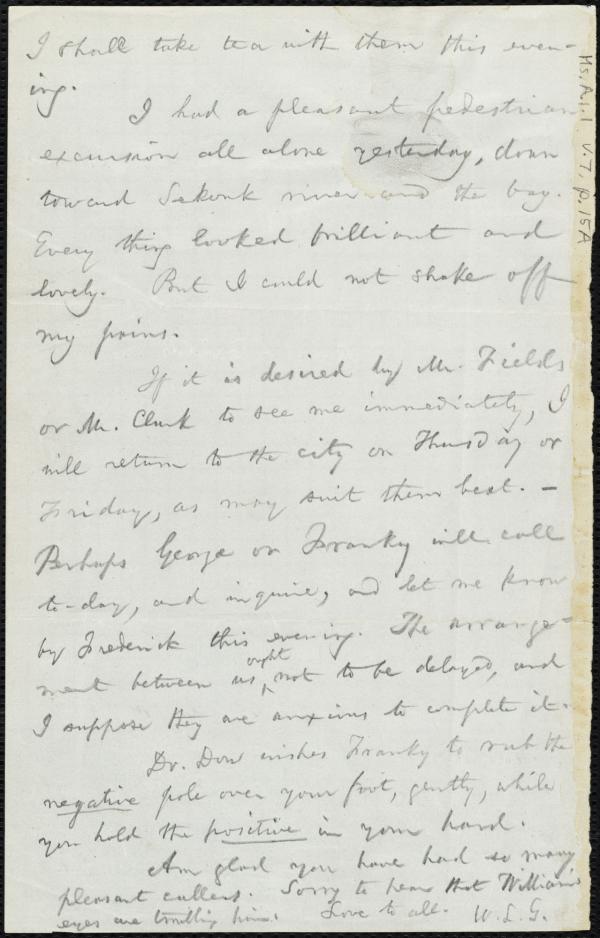 I shall take tea with them this even-
ing.
I had a pleasant pedestrian
excursion all alone yesterday, down
toward Sekonk river and the bay.
Every thing looked brilliant and
lovely. But I could not shake off
my pains.
If it is desired by Mr. Fields
or Mr. Clark to see me immediately, I
will return to the city on Thursday or
Friday, as may suit them best. –
Perhaps George or Franky will call
to-day, and inquire, and let me know
by Frederick this evening. The arrange-
ment between us ought not to be delayed, and
I suppose they are anxious to complete it.
Dr. Dow wishes Franky to rub the
negative pole over your foot, gently, while
you hold the positive in your hand.
Am glad you have had so many
pleasant callers. Sorry to hear that William's
eyes are troubling him. Love to all. W. L. G.
Ms. A. 1. 1 v. 7, p. 15A